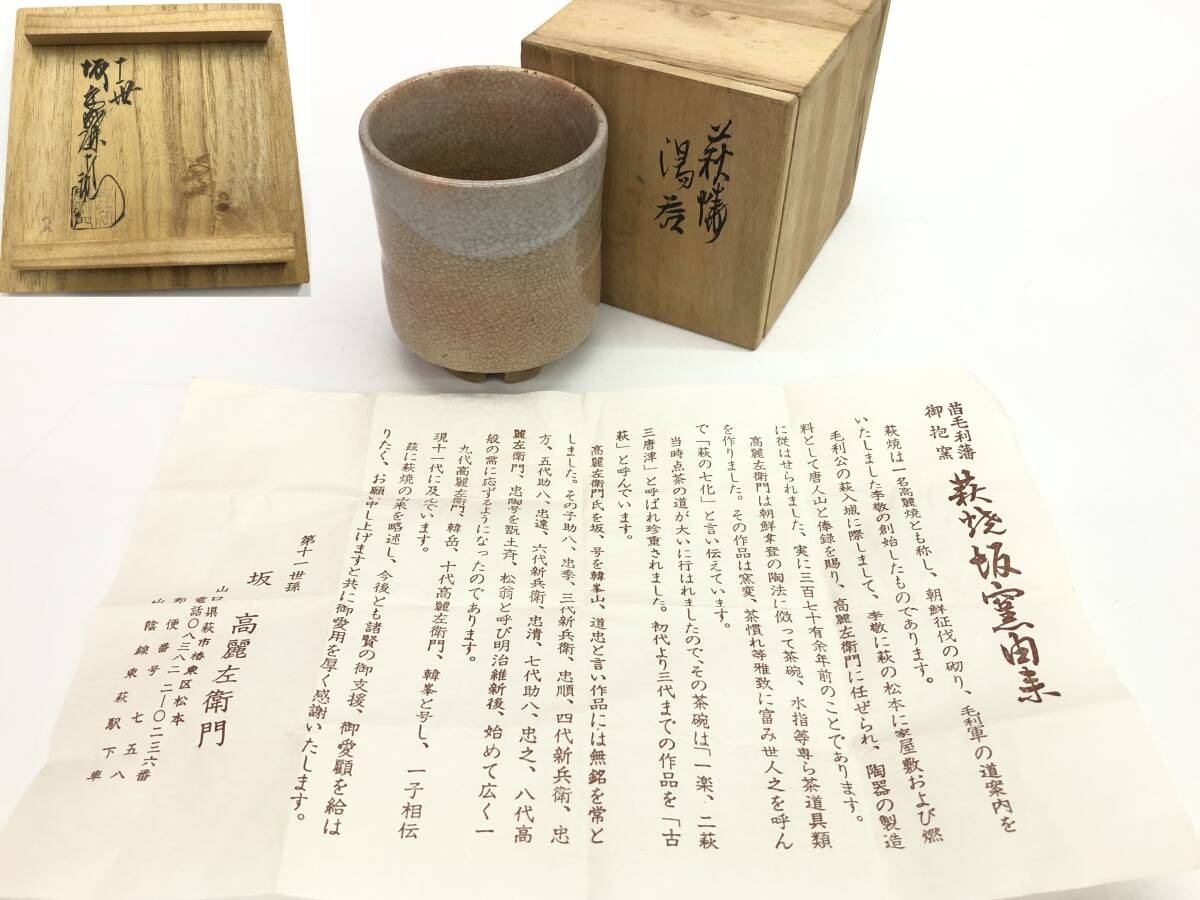 十一世
坂高麗左衛門
萩焼
湯呑
旧毛利藩
御抱窯
萩焼坂窯由来
萩焼は一名高麗焼とも称し、朝鮮征伐の砌り、毛利軍の道案内を
いたしました李敬の創始したものであります。
毛利公の萩入城に際しまして、李敬に萩の松本に家屋敷および燃
料として唐人山と俸録を賜り、高麗左衛門に任ぜられ、陶器の製造
に従はせられました、実に三百七十有余年前のことであります。
高麗左衛門は朝鮮傘登の陶法に倣って茶碗、水指等専ら茶道具類
を作りました。その作品は窯変、茶慣れ等雅致に富み世人之を呼ん
で「萩の七化」と言い伝えています。
当時点茶の道が大いに行はれましたので、その茶碗は「一楽、二萩
三唐津」と呼ばれ珍重されました。初代より三代までの作品を「古
萩」と呼んでいます。
高麗左衛門氏を坂、号を韓峯山、道忠と言い作品には無銘を常と
しました。その子助八、忠季、三代新兵衛、忠順、四代新兵衛、忠
方、五代助八、忠達、六代新兵衛、忠清、七代助八、忠之、八代高
麗左衛門、忠陶号を翫土斉、松翁と呼び明治維新後、始めて広く一
般の需に応ずるようになったのであります。
九代高麗左衛門、韓岳、十代高麗左衛門、韓峯と号し、一子相伝
現十一代に及んでいます。
茲に萩焼の由来を略述し、今後とも諸賢の御支援、御愛顧を給は
りたく、お願い申し上げますと共に御愛用を厚く感謝いたします。
第十一世孫
坂 高麗左衛門
山口県萩市椿東区松本
電話〇八三八二 二―〇二三六番
郵便番号 七五八
山陰線東萩駅下車